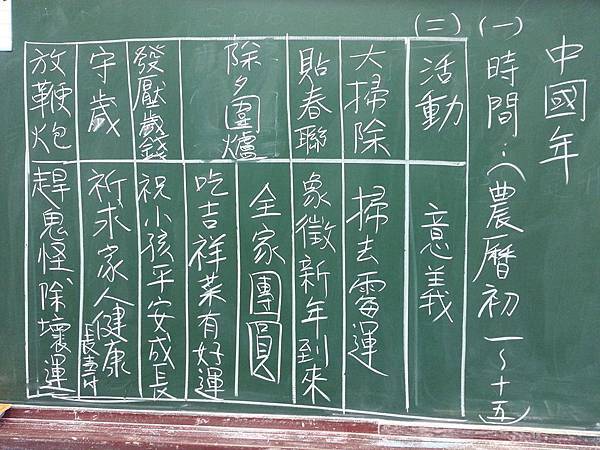 中國年
(一)時間:(農曆初一~十五)
(二)
活動
意義
大掃除
掃去霉運
貼春聯
象徵新年到來
除夕圍爐
全家團員
吃吉祥菜有好運
發壓歲錢
祝小孩平安成長
守歲
祈求家人健康長壽
放鞭炮
趕鬼怪、除壞運